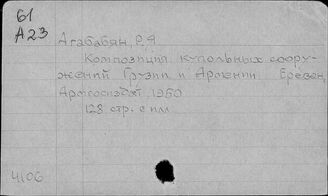 61
A23
Агабабян, Р. Я
Композиция купольных соору-
жений Грузии и Армении. Ереван,
Армгосиздат, 1950
128 стр. с илл
4106